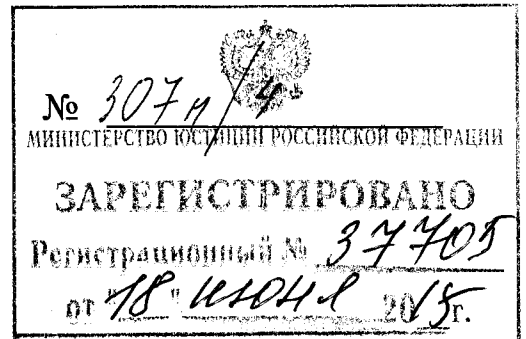 № 307н/4
МИНИСТЕРСТВО ЮСТИЦИИ РОССИЙСКОЙ ФЕДЕРАЦИИ
ЗАРЕГИСТРИРОВАНО
Регистрационный № 37705
от "18" июня 2015г.